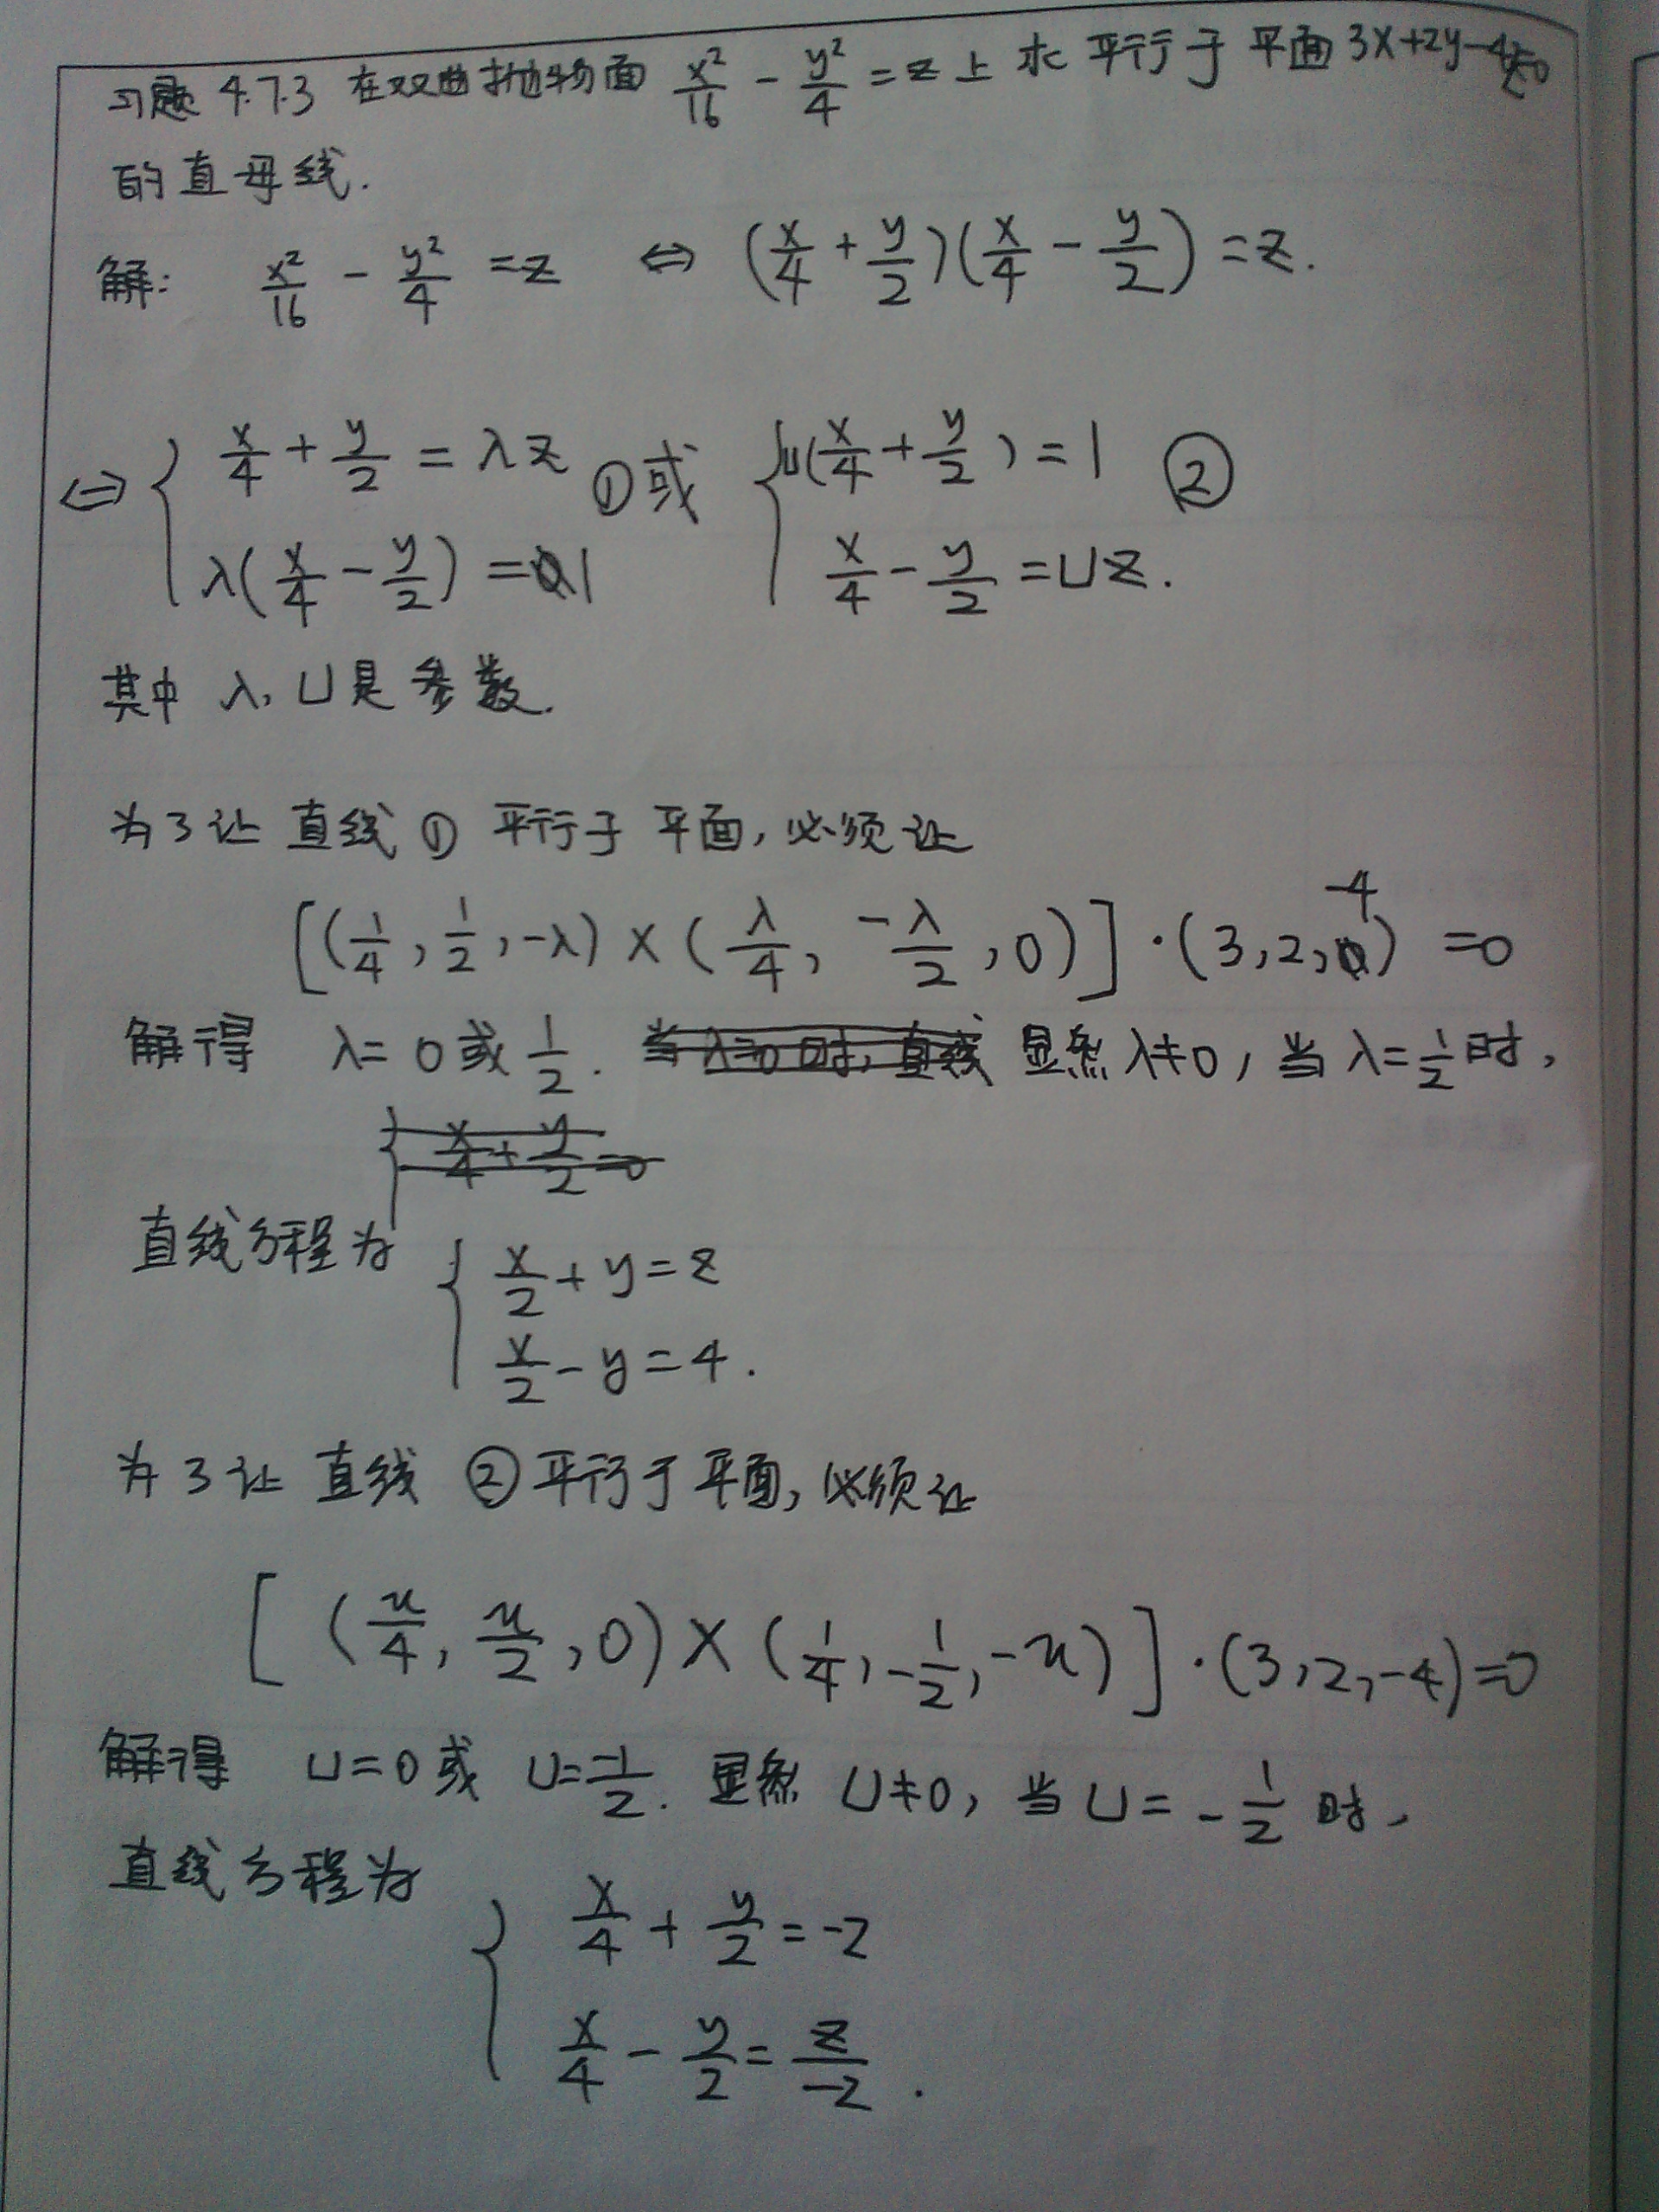 习题 4.7.3 在双曲抛物面 x²/16 - y²/4 = z 上求平行于平面 3x+2y-4z=0
的直母线.
解: x²/16 - y²/4 = z ⇔ (x/4 + y/2)(x/4 - y/2) = z.
⇔ { x/4 + y/2 = λz ① 或 { u(x/4 + y/2) = 1 ②
λ(x/4 - y/2) = 1 x/4 - y/2 = uz.
其中 λ, u 是参数.
为了让直线 ① 平行于平面, 必须让
[(1/4, 1/2, -λ) × (λ/4, -λ/2, 0)]·(3, 2, -4) = 0
解得 λ = 0 或 1/2. 当λ=0时, 直线 显然 λ≠0, 当 λ = 1/2 时,
{ x/4 + y/2 = 0
直线方程为 { x/2 + y = z
x/2 - y = 4.
为了让直线 ② 平行于平面, 必须让
[(u/4, u/2, 0) × (1/4, -1/2, -u)]·(3, 2, -4) = 0
解得 u = 0 或 u = -1/2. 显然 u≠0, 当 u = -1/2 时,
直线方程为 { x/4 + y/2 = -2
x/4 - y/2 = z/-2.